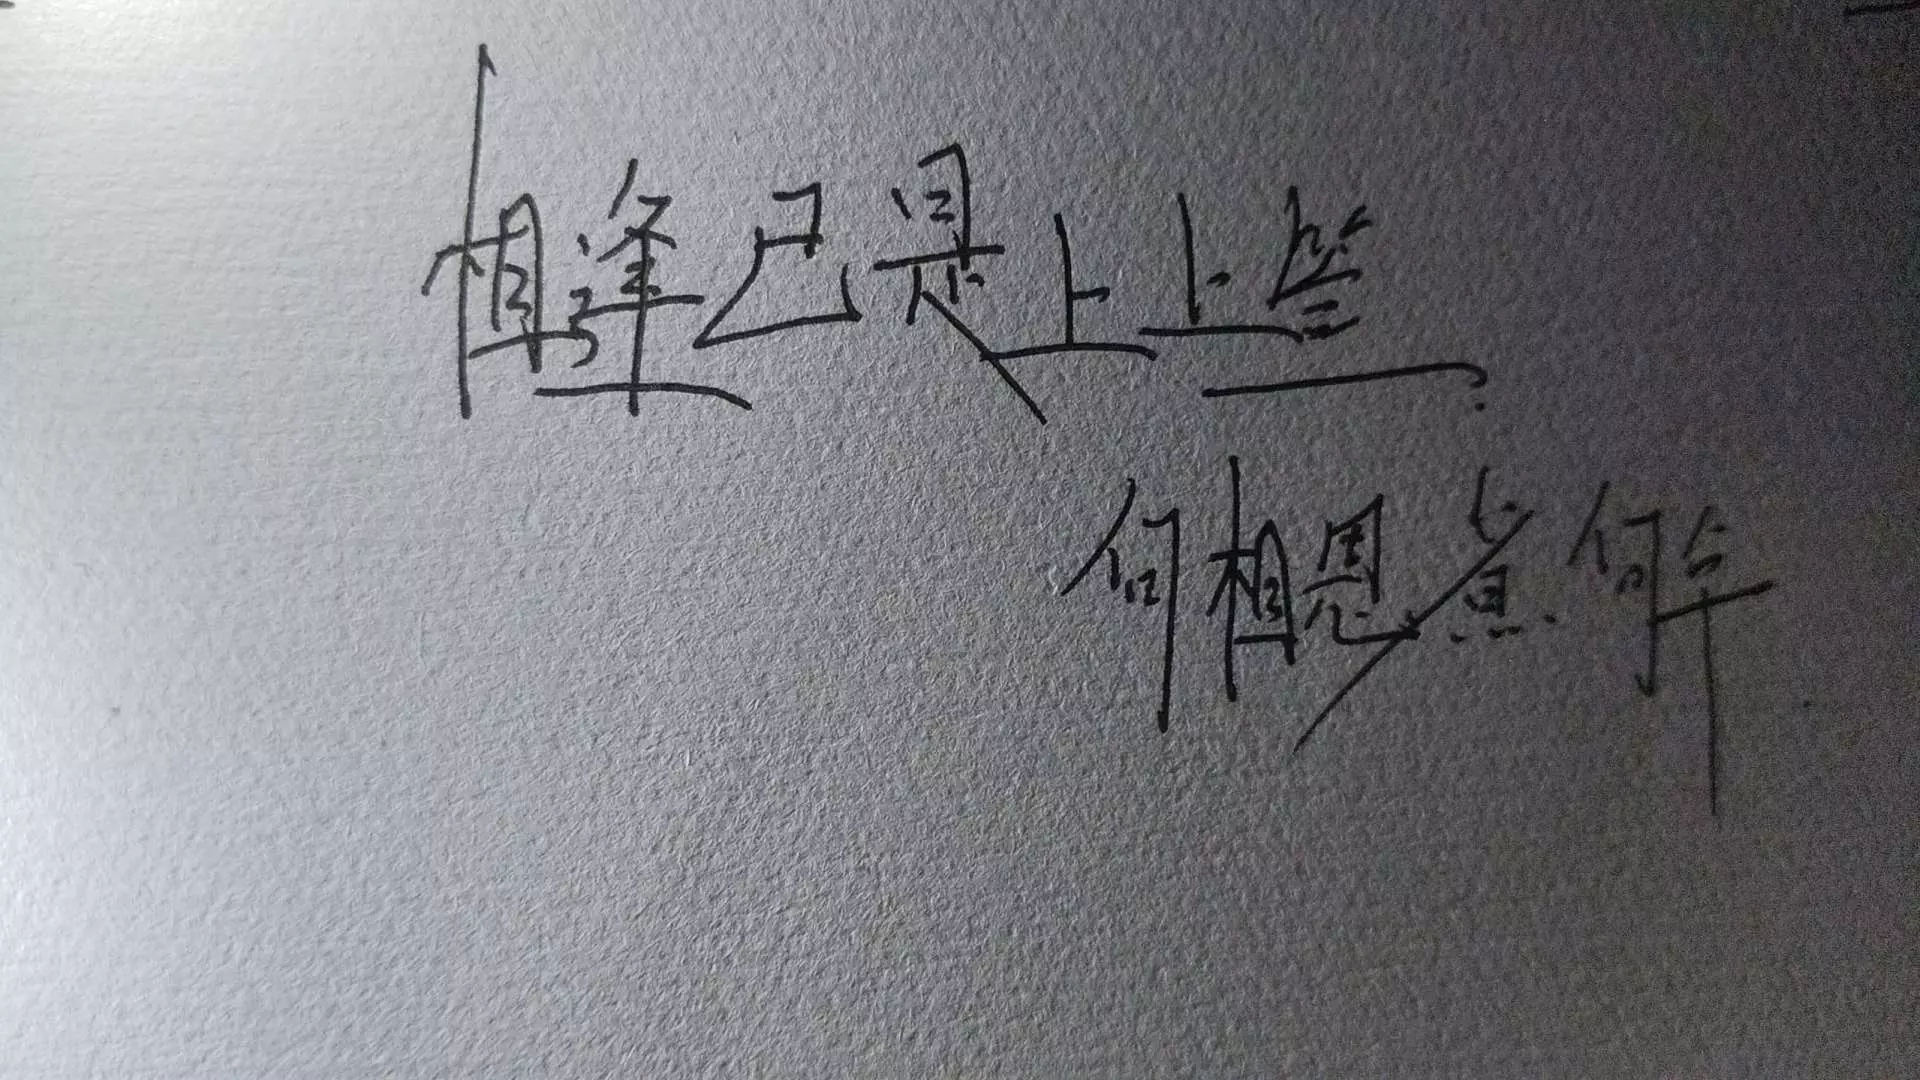 相逢已是上上签
何相思煮何年